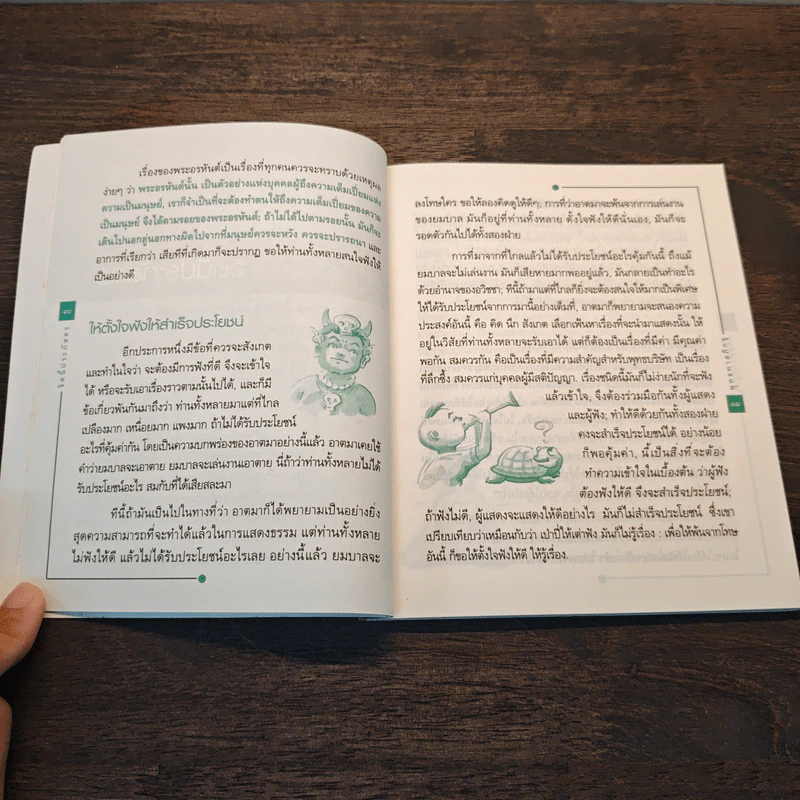 เรื่องของพระอรหันต์เป็นเรื่องที่ทุกคนควรจะทราบด้วยเหตุผล
ง่ายๆ ว่า พระอรหันต์นั้น เป็นตัวอย่างแห่งบุคคลผู้ถึงความเต็มเปี่ยมแห่ง
ความเป็นมนุษย์, เราก็จำเป็นที่จะต้องทำตนให้ถึงความเต็มเปี่ยมของความ
เป็นมนุษย์ จึงได้ตามรอยของพระอรหันต์; ถ้าไม่ได้ไปตามรอยนั้น มันก็จะ
เดินไปนอกลู่นอกทางผิดไปจากที่มนุษย์ควรจะหวัง ควรจะปรารถนา และ
อาการที่เรียกว่า เสียทีที่เกิดมาก็จะปรากฏ ขอให้ท่านทั้งหลายสนใจฟังให้
เป็นอย่างดี
๑๐
จิตนี้ประภัสสร
ให้ตั้งใจฟังให้สำเร็จประโยชน์
อีกประการหนึ่งมีข้อที่ควรจะสังเกต
และทำในใจว่า จะต้องมีการฟังที่ดี จึงจะเข้าใจ
ได้ หรือจะรับเอาเรื่องราวตามนั้นไปได้, และก็มี
ข้อเกี่ยวพันกันมาถึงว่า ท่านทั้งหลายมาแต่ที่ไกล
เปลืองมาก เหนื่อยมาก แพงมาก ถ้าไม่ได้รับประโยชน์
อะไรที่คุ้มค่ากัน โดยเป็นความบกพร่องของอาตมาอย่างนี้แล้ว อาตมาเคยใช้
คำว่ายมบาลจะเอาตาย ยมบาลจะเล่นงานเอาตาย นี่ถ้าว่าท่านทั้งหลายไม่ได้
รับประโยชน์อะไร สมกับที่ได้เสียสละมา
ทีนี้ถ้ามันเป็นไปในทางที่ว่า อาตมาก็ได้พยายามเป็นอย่างยิ่ง
สุดความสามารถที่จะทำได้แล้วในการแสดงธรรม แต่ท่านทั้งหลาย
ไม่ฟังให้ดี แล้วไม่ได้รับประโยชน์อะไรเลย อย่างนี้แล้ว ยมบาลจะ
ลงโทษใคร ขอให้ลองคิดดูให้ดีๆ; การที่ว่าอาตมาจะพ้นจากการเล่นงาน
ของยมบาล มันก็อยู่ที่ท่านทั้งหลาย ตั้งใจฟังให้ดีนั่นเอง, มันก็จะ
รอดตัวกันไปได้ทั้งสองฝ่าย
การที่มาจากที่ไกลแล้วไม่ได้รับประโยชน์อะไรคุ้มกันนี้ ถึงแม้
ยมบาลจะไม่เล่นงาน มันก็เสียหายมากพออยู่แล้ว, มันกลายเป็นทำอะไร
ด้วยอำนาจของอวิชชา; ทีนี้ถ้ามาแต่ที่ไกลก็ยิ่งจะต้องสนใจให้มากเป็นพิเศษ
ให้ได้รับประโยชน์จากการมานี้อย่างเต็มที่, อาตมาก็พยายามจะสนองความ
ประสงค์อันนี้ คือ คิด นึก สังเกต เลือกเฟ้นหาเรื่องที่จะนำมาแสดงนั้น ให้
อยู่ในวิสัยที่ท่านทั้งหลายจะรับเอาได้ แต่ก็ต้องเป็นเรื่องที่มีค่า มีคุณค่า
พอกัน สมควรกัน คือเป็นเรื่องที่มีความสำคัญสำหรับพุทธบริษัท เป็นเรื่อง
ที่ลึกซึ้ง สมควรแก่บุคคลผู้มีสติปัญญา. เรื่องชนิดนี้มันก็ไม่ง่ายนักที่จะฟัง
แล้วเข้าใจ, จึงต้องร่วมมือกันทั้งผู้แสดง
และผู้ฟัง; ทำให้ดีด้วยกันทั้งสองฝ่าย
คงจะสำเร็จประโยชน์ได้ อย่างน้อย
ก็พอคุ้มค่า, นี้เป็นสิ่งที่จะต้อง
ทำความเข้าใจในเบื้องต้น ว่าผู้ฟัง
ต้องฟังให้ดี จึงจะสำเร็จประโยชน์;
ถ้าฟังไม่ดี, ผู้แสดงจะแสดงให้ดีอย่างไร มันก็ไม่สำเร็จประโยชน์ ซึ่งเขา
เปรียบเทียบว่าเหมือนกับว่า เป่าปี่ให้เต่าฟัง มันก็ไม่รู้เรื่อง : เพื่อให้พ้นจากโทษ
อันนี้ ก็ขอให้ตั้งใจฟังให้ดี ให้รู้เรื่อง.
๑๑